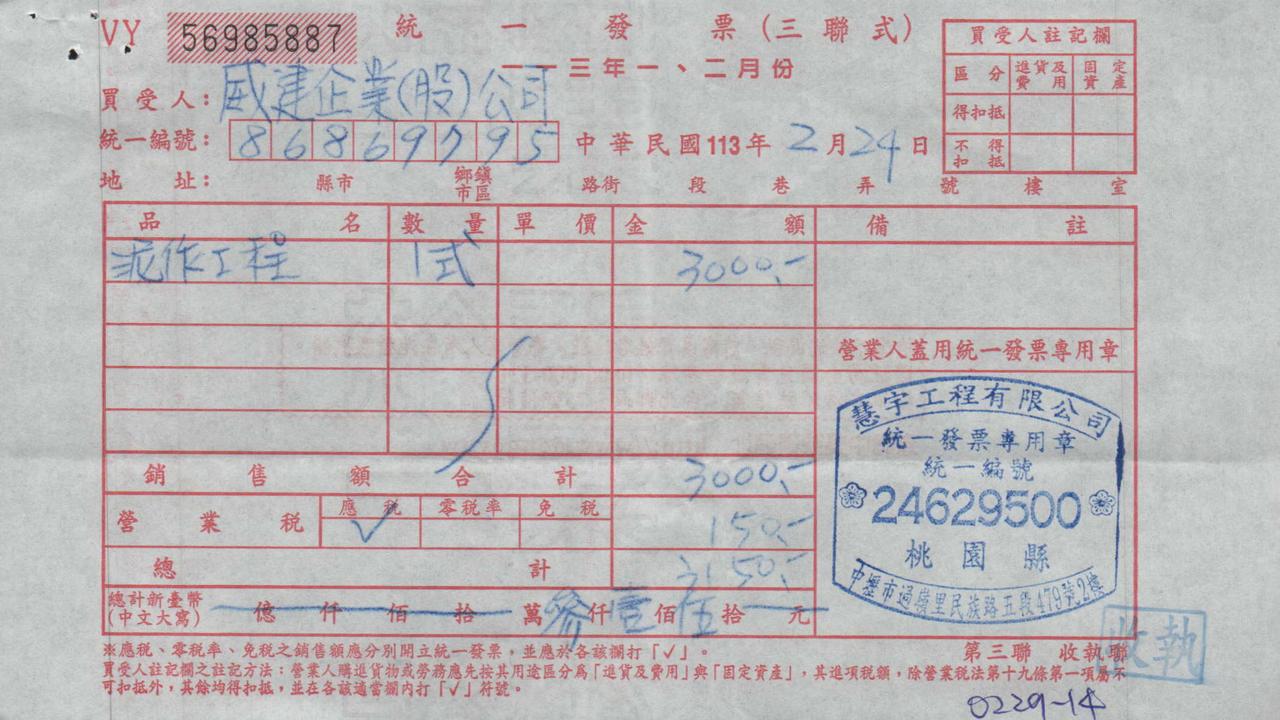 VY 56985887 統一發票(三聯式)
一一三年一、二月份
買受人註記欄
區分 進貨及費用 固定資產
得扣抵
不得扣抵
買受人: 威建企業(股)公司
統一編號: 86869795 中華民國113年2月24日
地址: 縣市 鄉鎮市區 路街 段 巷 弄 號 樓 室
品名 數量 單價 金額 備註
泥作工程 1式 3000.-
營業人蓋用統一發票專用章
銷售額合計 3000.-
營業稅 應稅 ✓ 零稅率 免稅 150.-
總計 3150.-
總計新臺幣(中文大寫) 億仟佰拾萬參仟壹佰伍拾元
慧宇工程有限公司
統一發票專用章
統一編號
24629500
桃園縣
中壢市過嶺里民族路五段479號2樓
※應稅、零稅率、免稅之銷售額應分別開立統一發票,並應於各該欄打「✓」。
第三聯 收執聯
收執
買受人註記欄之註記方法:營業人購進貨物或勞務應先按其用途區分為「進貨及費用」與「固定資產」,其進項稅額,除營業稅法第十九條第一項屬不
可扣抵外,其餘均得扣抵,並在各該適當欄內打「✓」符號。
0229-14